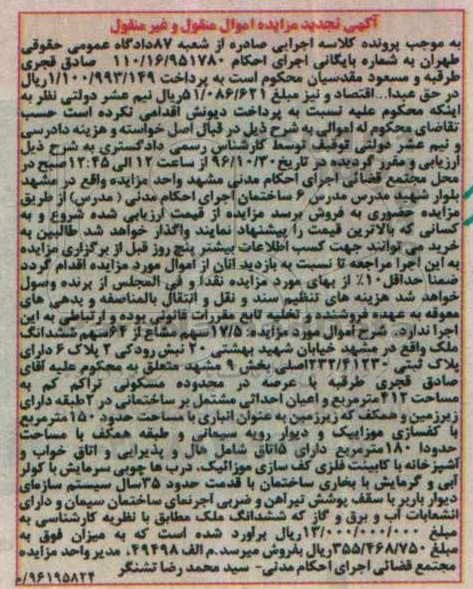 آگهی تجدید مزایده اموال منقول و غیر منقول
به موجب پرونده کلاسه اجرایی صادره از شعبه ۸۷دادگاه عمومی حقوقی
طهران به شماره بایگانی اجرای احکام ۱۱۰/۱۶/۹۵۱۷۸۰ صادق قجری
طرقبه و مسعود مقدسیان محکوم است به پرداخت ۱/۱۰۰/۹۹۳/۱۴۹ریال
در حق عبدا...اقتصاد و نیز مبلغ ۵۱/۰۸۶/۶۲۱ریال نیم عشر دولتی نظر به
اینکه محکوم علیه نسبت به پرداخت دیونش اقدامی نکرده است حسب
تقاضای محکوم له اموالی به شرح ذیل در قبال اصل خواسته و هزینه دادرسی
و نیم عشر دولتی توقیف توسط کارشناس رسمی دادگستری به شرح ذیل
ارزیابی و مقرر گردیده در تاریخ۹۶/۱۰/۳۰ از ساعت ۱۲ الی ۱۲:۴۵صبح در
محل مجتمع قضائی اجرای احکام مدنی مشهد واحد مزایده واقع در مشهد
بلوار شهید مدرس مدرس ۶ ساختمان اجرای احکام مدنی ( مدرس) از طریق
مزایده حضوری به فروش برسد مزایده از قیمت ارزیابی شده شروع و به
کسانی که بالاترین قیمت را پیشنهاد نمایند واگذار خواهد شد طالبین به
خرید می توانند جهت کسب اطلاعات بیشتر پنج روز قبل از برگزاری مزایده
به این اجرا مراجعه تا نسبت به بازدید آنان از اموال مورد مزایده اقدام گردد
ضمنا حداقل۱۰٪ از بهای مورد مزایده نقدا و فی المجلس از برنده وصول
خواهد شد هزینه های تنظیم سند و نقل و انتقال بالمناصفه و بدهی های
معوقه به عهده فروشنده و تخلیه تابع مقررات قانونی بوده و ارتباطی به این
اجرا ندارد. شرح اموال مورد مزایده: ۱۷/۵سهم مشاع از ۶۴سهم ششدانگ
ملک واقع در مشهد خیابان شهید بهشتی ۲۰ نبش رودکی ۲ پلاک ۶ دارای
پلاک ثبتی ۲۳۲/۴۱۲۳۰اصلی بخش ۹ مشهد متعلق به محکوم علیه آقای
صادق قجری طرقبه با عرصه در محدوده مسکونی تراکم کم به
مساحت ۴۱۲مترمربع و اعیان احداثی مشتمل بر ساختمانی در ۲طبقه دارای
زیرزمین و همکف که زیرزمین به عنوان انباری با مساحت حدود ۱۵۰مترمربع
با کفسازی موزاییک و دیوار رویه سیمانی و طبقه همکف با مساحت
حدودا ۱۸۰مترمربع دارای ۵اتاق شامل هال و پذیرایی و اتاق خواب و
آشپزخانه با کابینت فلزی کف سازی موزائیک، درب ها چوبی سرمایش با کولر
آبی و گرمایش با بخاری ساختمان با قدمت حدود ۳۵سال سیستم سازه‌ای
دیوار باربر با سقف پوشش تیرآهن و ضربی آجرنمای ساختمان سیمان و دارای
انشعابات آب و برق و گاز که ششدانگ ملک مطابق با نظریه کارشناسی به
مبلغ ۱۳/۰۰۰/۰۰۰/۰۰۰ریال برآورد شده است که به میزان فوق به
مبلغ ۳/۵۵۵/۴۶۸/۷۵۰ریال بفروش میرسد.م الف ۴۹۴۹۸. مدیر واحد مزایده
مجتمع قضائی اجرای احکام مدنی- سید محمد رضا تشنگر
۹۶۱۹۵۸۲۴/م